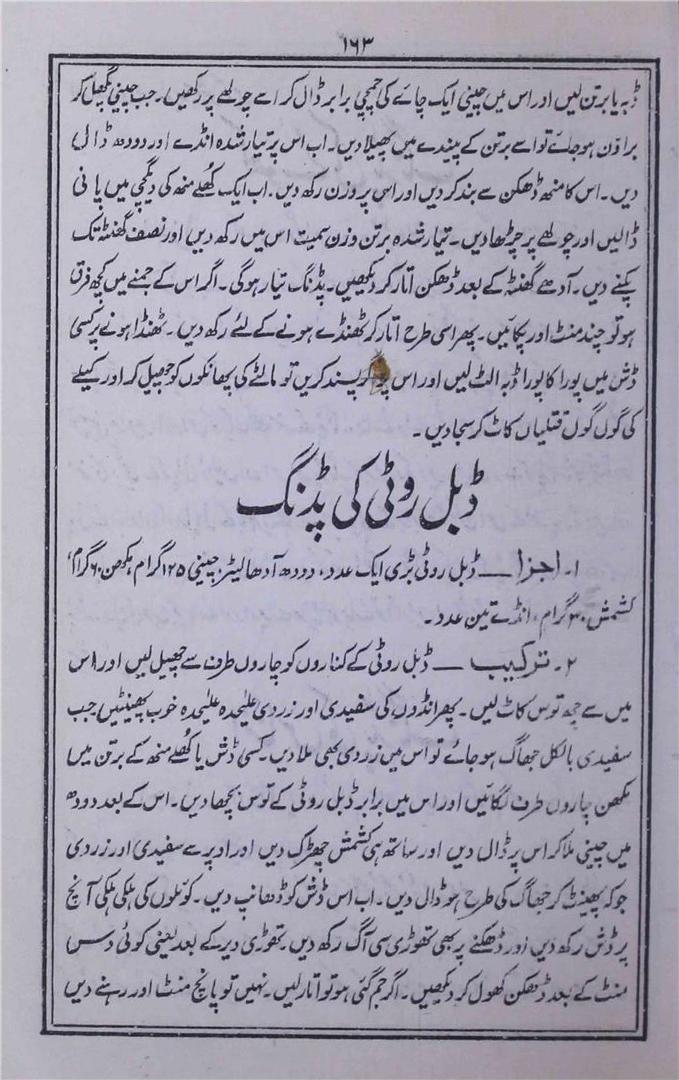 ۱۶۳
ڈبہ یا برتن لیں اور اس میں چینی ایک چائے کی چمچی برابر ڈال کر اسے چولھے پر رکھیں۔ جب چینی پگھل کر
براؤن ہو جائے تو اسے برتن کے پیندے میں پھیلا دیں۔ اب اس پر تیار شدہ انڈے اور دودھ ڈال
دیں۔ اس کا منھ ڈھکن سے بند کر دیں اور اس پر وزن رکھ دیں۔ اب ایک کھلے منھ کی دیگچی میں پانی
ڈالیں اور چولھے پر چڑھا دیں۔ تیار شدہ برتن وزن سمیت اس میں رکھ دیں اور نصف گھنٹہ تک
پکنے دیں۔ آدھے گھنٹہ کے بعد ڈھکن اتار کر دیکھیں۔ پڈنگ تیار ہو گی۔ اگر اس کے جمنے میں کچھ فرق
ہو تو چند منٹ اور پکائیں۔ پھر اسی طرح اتار کر ٹھنڈے ہونے کے لئے رکھ دیں۔ ٹھنڈا ہونے پر کسی
ڈش میں پورا کا پورا ڈبہ الٹ لیں اور اس پر اگر پسند کریں تو مالٹے کی پھانکوں کو چھیل کر اور کیلے
کی گول گول قتلیاں کاٹ کر سجا دیں۔
ڈبل روٹی کی پڈنگ
۱۔ اجزا — ڈبل روٹی بڑی ایک عدد، دودھ آدھا لیٹر، چینی ۱۲۵ گرام، مکھن ۶۰ گرام،
کشمش ۳۰ گرام، انڈے تین عدد۔
۲۔ ترکیب — ڈبل روٹی کے کناروں کو چاروں طرف سے چھیل لیں اور اس
میں سے چھ توس کاٹ لیں۔ پھر انڈوں کی سفیدی اور زردی علیحدہ علیحدہ خوب پھینٹیں جب
سفیدی بالکل جھاگ ہو جائے تو اس میں زردی بھی ملا دیں۔ کسی ڈش یا کھلے منھ کے برتن میں
مکھن چاروں طرف لگائیں اور اس میں برابر ڈبل روٹی کے توس بچھا دیں۔ اس کے بعد دودھ
میں چینی ملا کر اس پر ڈال دیں اور ساتھ ہی کشمش چھڑک دیں اور اوپر سے سفیدی اور زردی
جو کہ پھینٹ کر جھاگ کی طرح ہو ڈال دیں۔ اب اس ڈش کو ڈھانپ دیں۔ کوئلوں کی ہلکی ہلکی آنچ
پر ڈش رکھ دیں اور ڈھکنے پر بھی تھوڑی سی آگ رکھ دیں۔ تھوڑی دیر کے بعد یعنی کوئی دس
منٹ کے بعد ڈھکن کھول کر دیکھیں۔ اگر جم گئی ہو تو اتار لیں۔ نہیں تو پانچ منٹ اور رہنے دیں